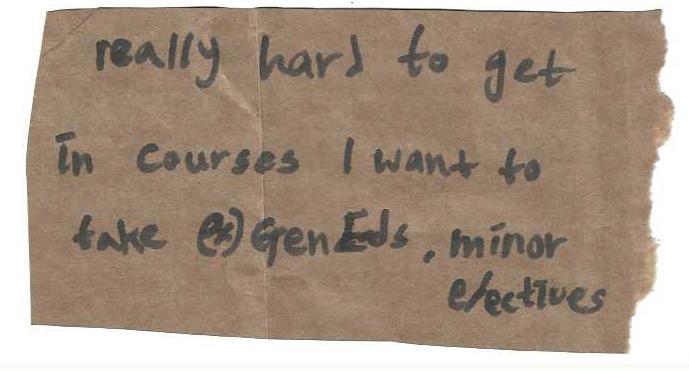 really hard to get
in courses I want to
take ex) GenEds, minor
electives